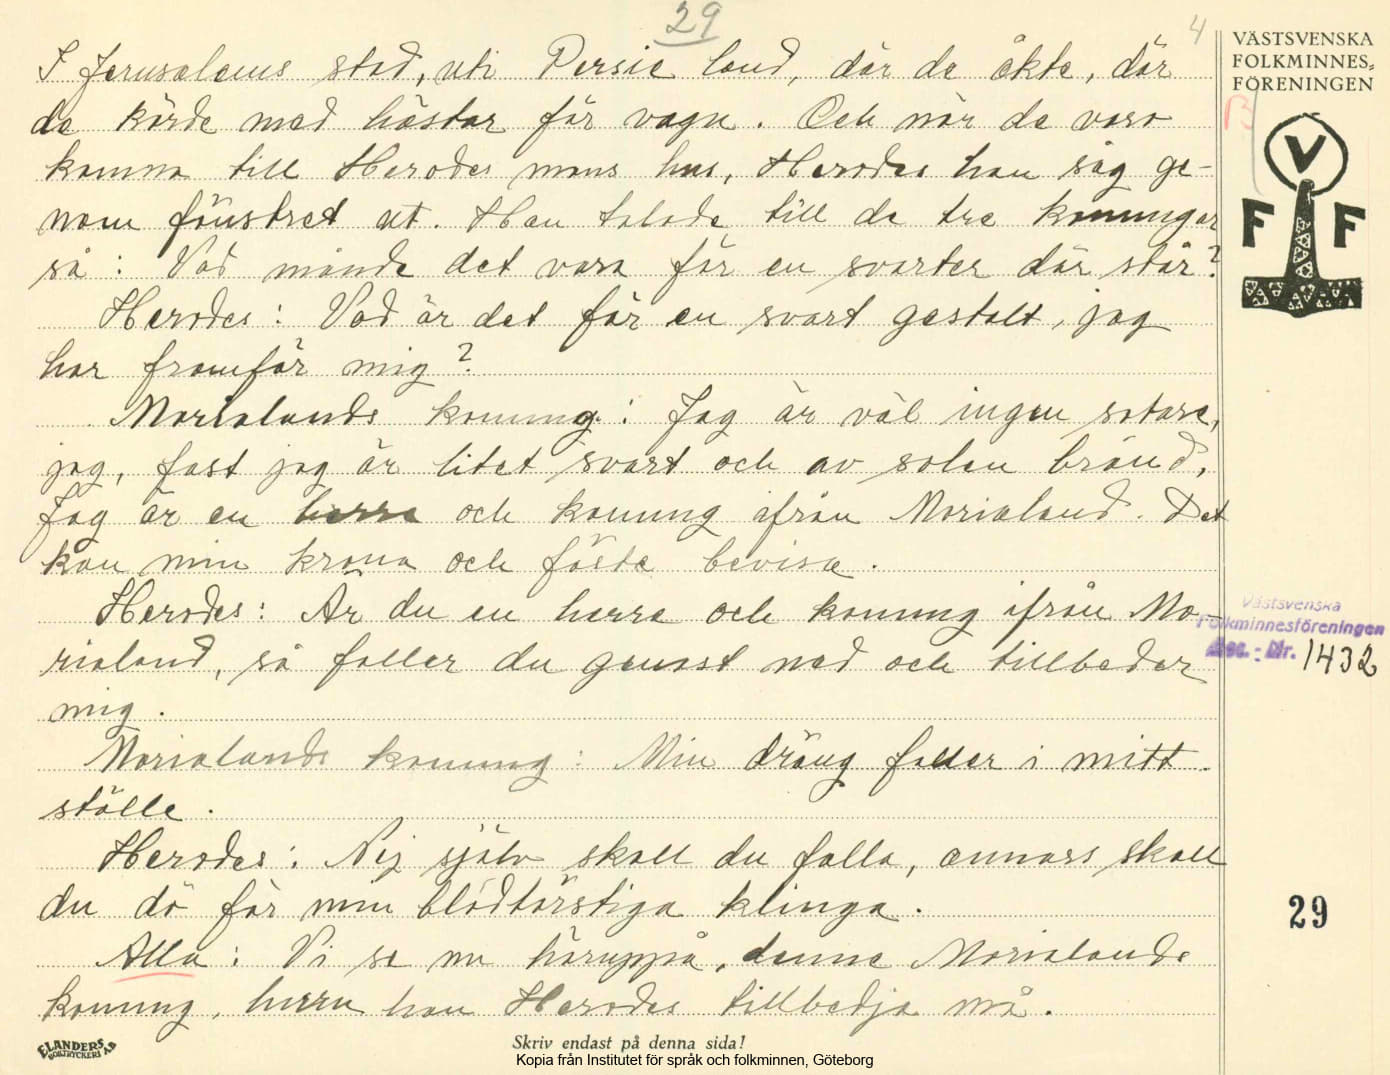 29
4
VÄSTSVENSKA
FOLKMINNES-
FÖRENINGEN
I Jerusalems stad, uti Persie land, där de åkte, där
de körde med hästar för vagn. Och när de voro
komna till Herodes mans hus, Herodes han såg ge-
nom fönstret ut. Han talade till de tre konungar
så: Vad månde det vara för en svarter där står?
Herodes: Vad är det för en svart gestalt, jag
har framför mig?
Morialands konung: Jag är väl ingen sotare,
jag, fast jag är litet svart och av solen bränd,
Jag är en herre och konung ifrån Morialand. Det
kan min krona och fäste bevisa.
Herodes: Är du en herre och konung ifrån Mo-
rialand, så faller du genast ned och tillbeder
mig.
Morialands konung: Min dräng faller i mitt
ställe.
Herodes: Nej själv skall du falla, annars skall
du dö för min blodtörstiga klinga.
Alla: Vi se nu häruppå, denne Morialands
konung, huru han Herodes tillbedja må.
B
V
F F
Västsvenska
Folkminnesföreningen
Acc.-Nr. 1432
29
ELANDERS
BOKTRYCKERI AB
Skriv endast på denna sida!
Kopia från Institutet för språk och folkminnen, Göteborg